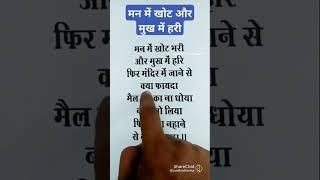 मन में खोट और
मुख में हरी
मन में खोट भरी
और मुख में हरि
फिर मंदिर में जाने से
क्या फायदा
मैल का ना धोया
लिया
नहाने
से ॥
ShareChat